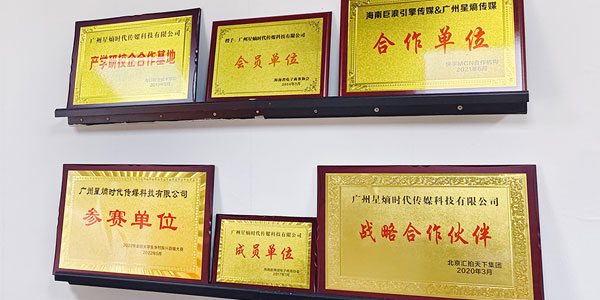 广州星熵时代传媒科技有限公司
产学研校企合作基地
授予:广州星熵时代传媒科技有限公司
会员单位
海南省电子商务协会
海南巨浪引擎传媒&广州星熵传媒
合作单位
快手MCN合作机构
2021年6月
广州星熵时代传媒科技有限公司
参赛单位
2022年5月
广州星熵时代传媒科技有限公司
成员单位
广州星熵时代传媒科技有限公司
战略合作伙伴
北京汇拍天下集团
2020年3月